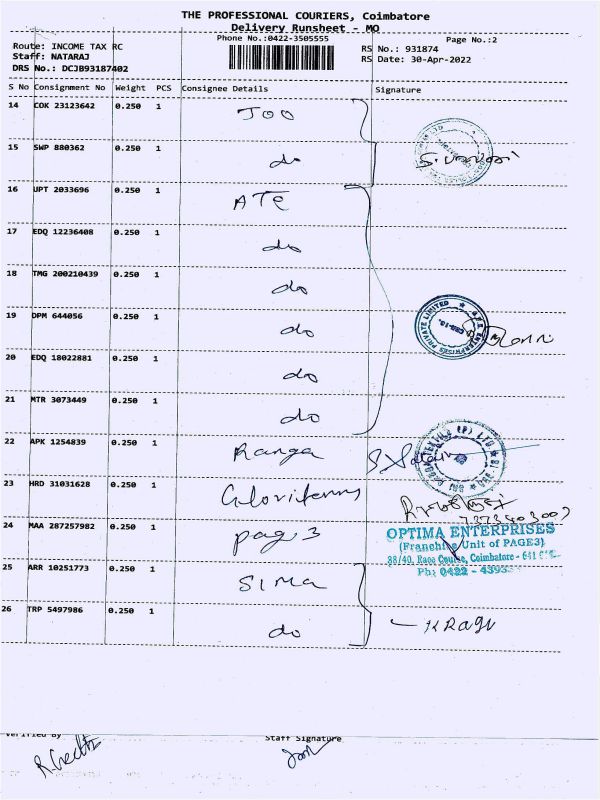 THE PROFESSIONAL COURIERS, Coimbatore
Delivery Runsheet - MO
Phone No.:0422-3505555
Page No.:2
Route: INCOME TAX RC
RS No.: 931874
Staff: NATARAJ
RS Date: 30-Apr-2022
DRS No.: DCJB93187402
S No Consignment No Weight PCS Consignee Details Signature
14 COK 23123642 0.250 1 JOO
15 SWP 880362 0.250 1 do
16 UPT 2033696 0.250 1 ATE
17 EDQ 12236408 0.250 1 do
18 TMG 200210439 0.250 1 do
19 DPM 644056 0.250 1 do
20 EDQ 18022881 0.250 1 do
21 MTR 3073449 0.250 1 do
22 APK 1254839 0.250 1 Ranga
23 HRD 31031628 0.250 1
24 MAA 287257982 0.250 1 page 3
OPTIMA ENTERPRISES
(Franchise Unit of PAGE3)
88/40, Race Course, Coimbatore - 641
Ph: 0422 -
25 ARR 10251773 0.250 1 SIMA
26 TRP 5497986 0.250 1 do
KRagu
Verified By Staff Signature